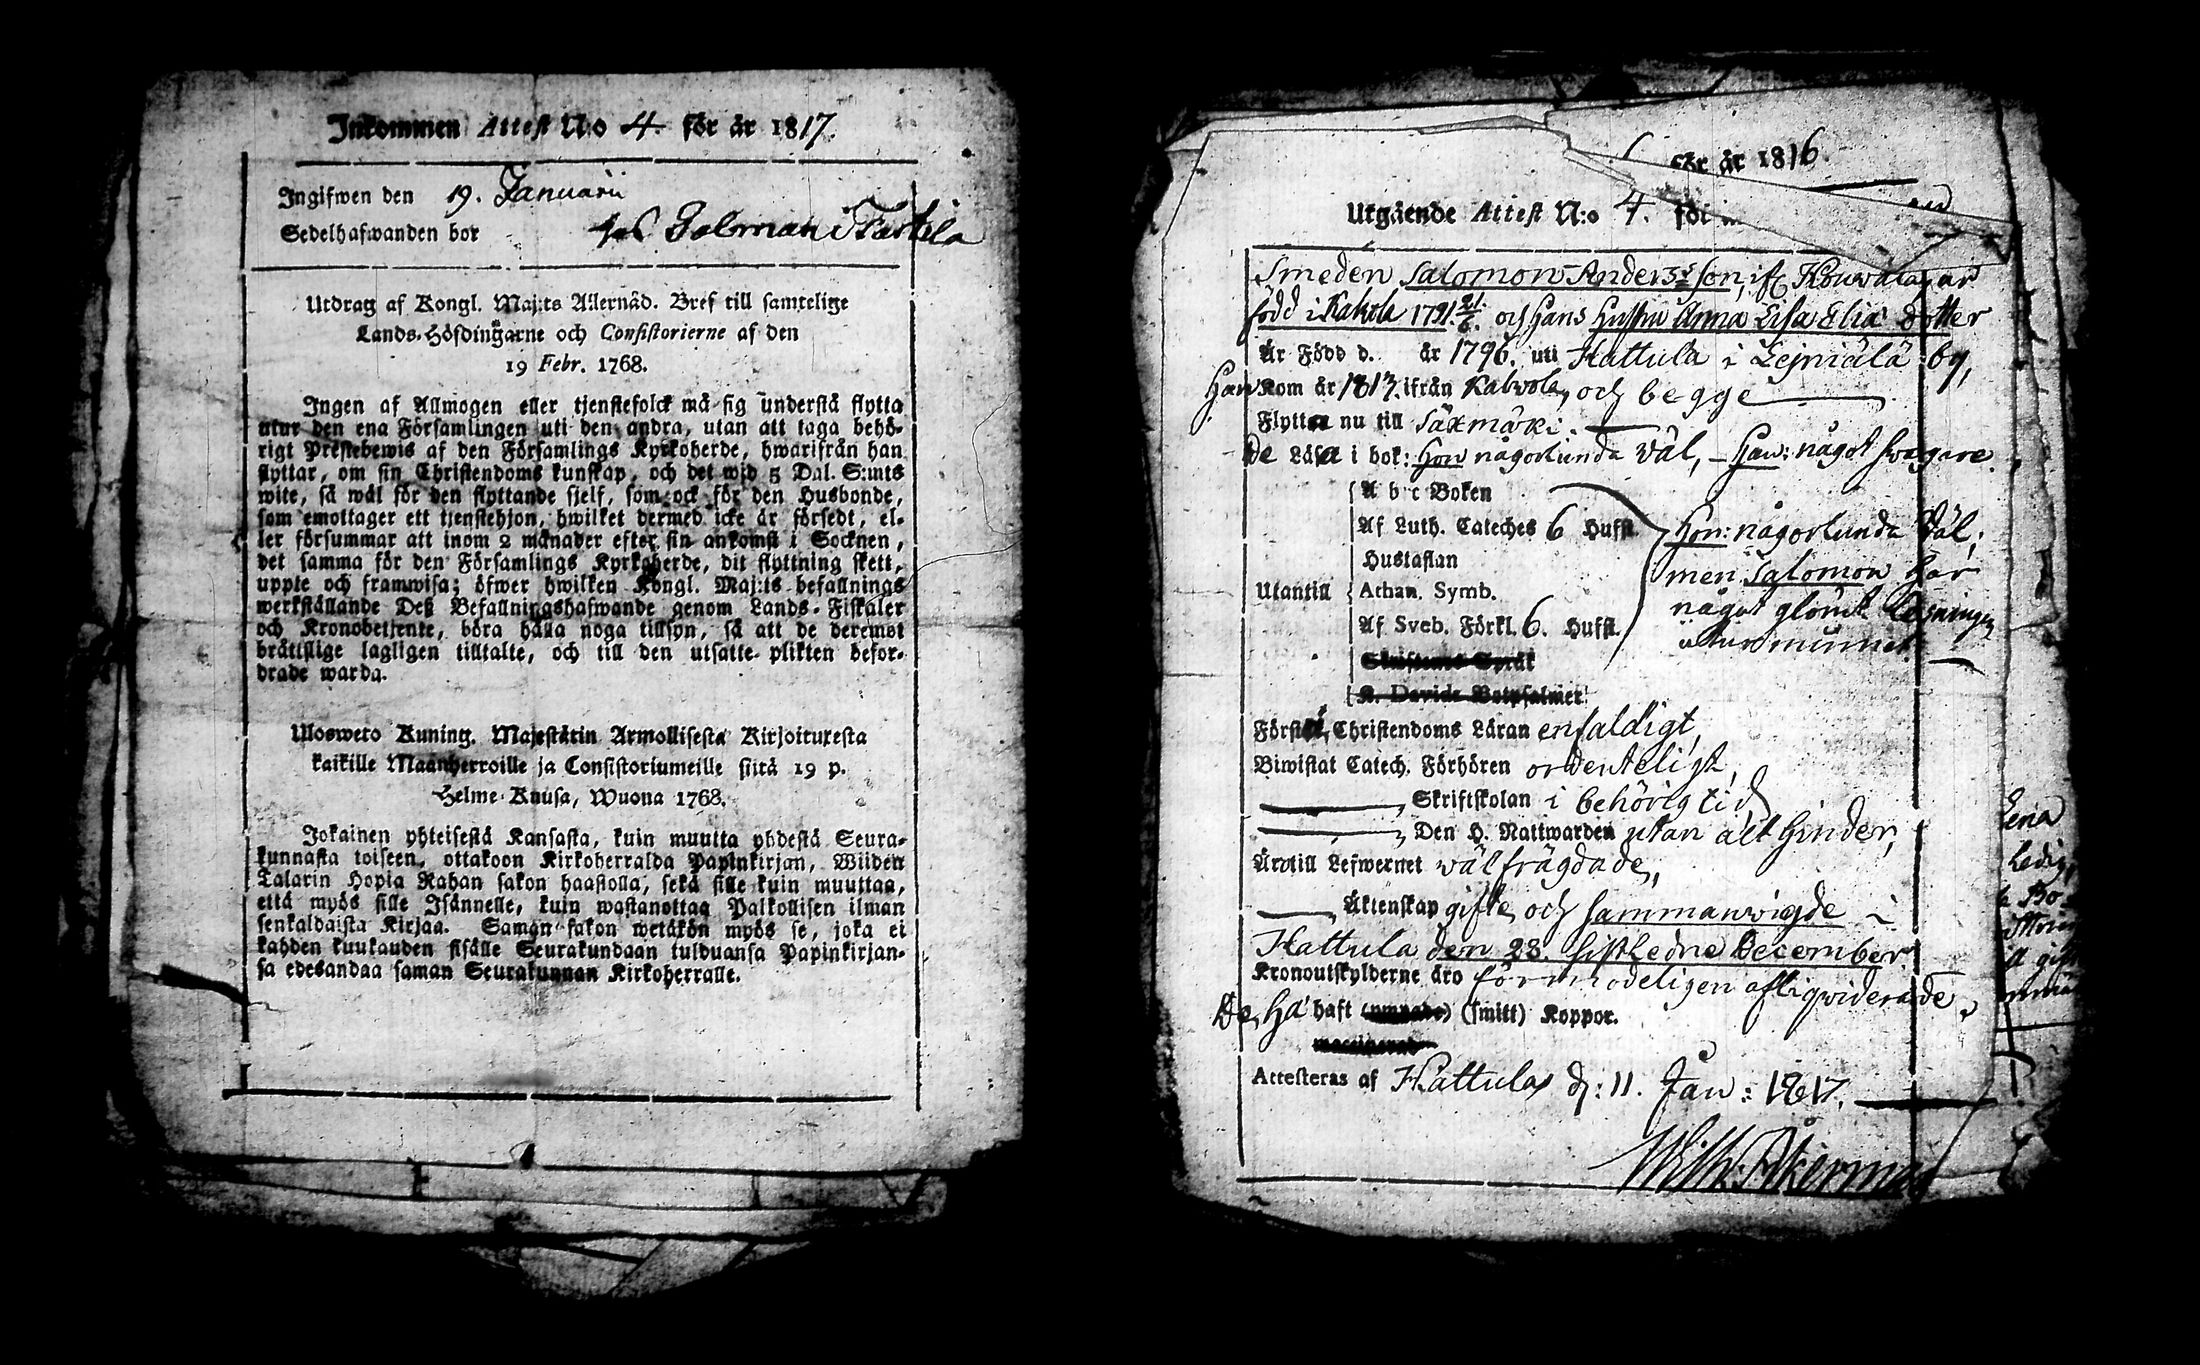 Inkommen Attest N:o 4. för år 1817.
Ingifwen den 19. Januarii
Sedelhafwanden bor hos Salman i
Utdrag af Kongl. Maj:ts Allernåd. Bref till samtelige
Lands-Höfdingarne och Consistorierne af den
19 Febr. 1768.
Ingen af Allmogen eller tjenstefolck må sig understå flytta
utur den ena Församlingen uti den andra, utan att taga behö-
rigt Prestebewis af den Församlings Kyrkoherde, hwarifrån han
flyttar, om sin Christendoms kunskap, och det wid 5 Dal. S:mts
wite, så wäl för den flyttande sjelf, som ock för den Husbonde,
som emottager ett tjenstehjon, hwilket dermed icke är försedt, el-
ler försummar att inom 2 månader efter sin ankomst i Socknen,
det samma för den Församlings Kyrkoherde, dit flyttning skett,
uppte och framwisa; öfwer hwilken Kongl. Maj:ts befallnings
werkställande Deß Befallningshafwande genom Lands-Fiskaler
och Kronobetjente, böra hålla noga tillsyn, så att de deremot
bråttslige lagligen tilltalte, och till den utsatte plikten befor-
drade warda.
Ulosweto Kuning. Majestätin Armollisesta Kirjoituresta
kaikille Maanherroille ja Consistoriumeille siitä 19 p.
Helme Kuusa, Wuona 1768.
Jokainen yhteisestä Kansasta, kuin muutta yhdestä Seura-
kunnasta toiseen, ottakoon Kirkoherralda Papinkirjan, Wiiden
Talarin Hopia Rahan sakon haastolla, sekä sille kuin muuttaa,
että myös sille Isännelle, kuin wastanottaa Palkollisen ilman
senkaldaista Kirjaa. Saman sakon wetäkön myös se, joka ei
kahden kuukauden sisälle Seurakundaan tulduansa Papinkirjan-
sa edesandaa saman Seurakunnan Kirkoherralle.
för år 1816.
Utgående Attest N:o 4. för
Smeden Salomon Andersson, ifr. är
född i 1791 21/6. och hans hustru Anna Lisa Elia dotter
Är Född d. år 1796. uti Hattula i Lejniälä by,
Han Kom år 1813. ifrån Kalwola, och begge
Flytta nu till Säxmäki.
De Läsa i bok: Hon någorlunda wäl, Han: något swagare.
A b c Boken
Af Luth. Cateches 6 Hufst. Hon: någorlunda wäl,
Hustaflan men Salomon har
Utantill Athan. Symb. något glömt läsningen
Af Sveb. Förkl. 6. Hufst. utur minnet.
Skriftenes Språk
K. Davids Botpsalmer
Förstå, Christendoms Läran enfaldigt,
Biwistat Catech. Förhören ordenteligt,
Skriftskolan i behörig tid
Den H. Nattwarden utan alt hinder,
Äro till Lefwernet wälfrägdade,
Äktenskap gifte, och sammanwigde i
Hattula den 28. sistledne December.
Kronoutskylderne äro förmodeligen afliqwiderade.
De, ha haft (smitt) Koppor.
Attesteras af Hattula d: 11. Jan: 1817.
Wilh: Åkerman